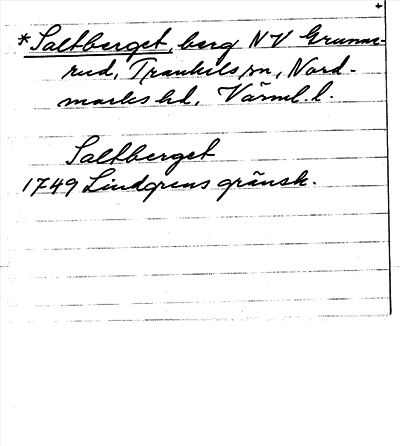 *Saltberget, berg NV Grunne-
rud, Trankils sn, Nord-
marks hd, Värml. l.
Saltberget
1749 Lindgrens gränsk.